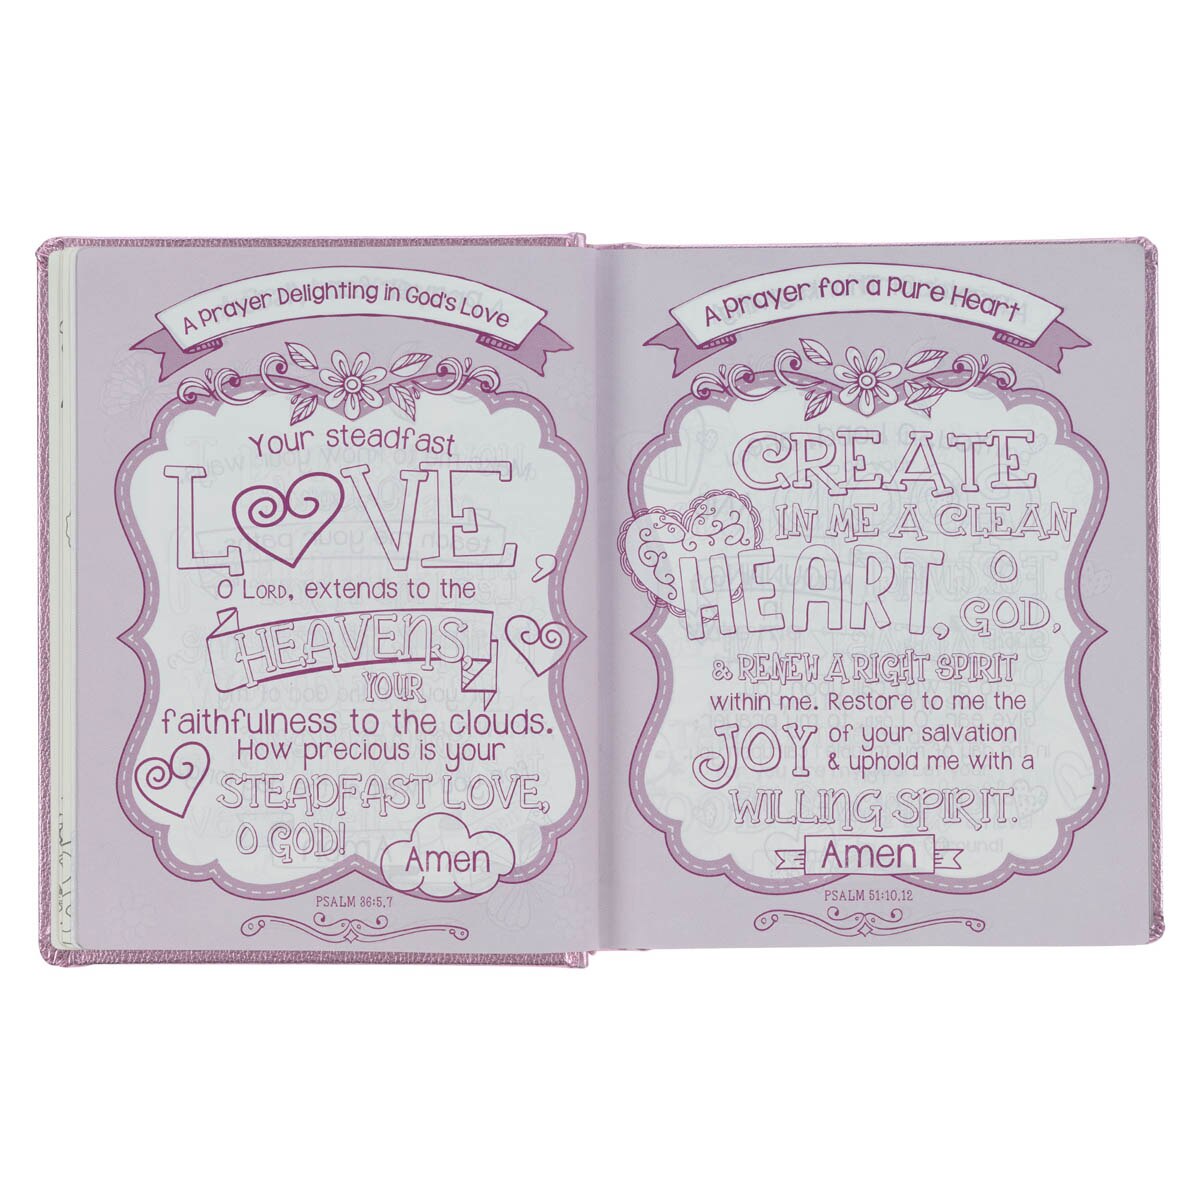 A Prayer Delighting in God's Love
Your steadfast
LOVE,
O LORD, extends to the
HEAVENS,
YOUR
faithfulness to the clouds.
How precious is your
STEADFAST LOVE,
O GOD!
Amen
PSALM 36:5,7
A Prayer for a Pure Heart
CREATE
IN ME A CLEAN
HEART, O
GOD,
& RENEW A RIGHT SPIRIT
within me. Restore to me the
JOY of your salvation
& uphold me with a
WILLING SPIRIT.
Amen
PSALM 51:10,12